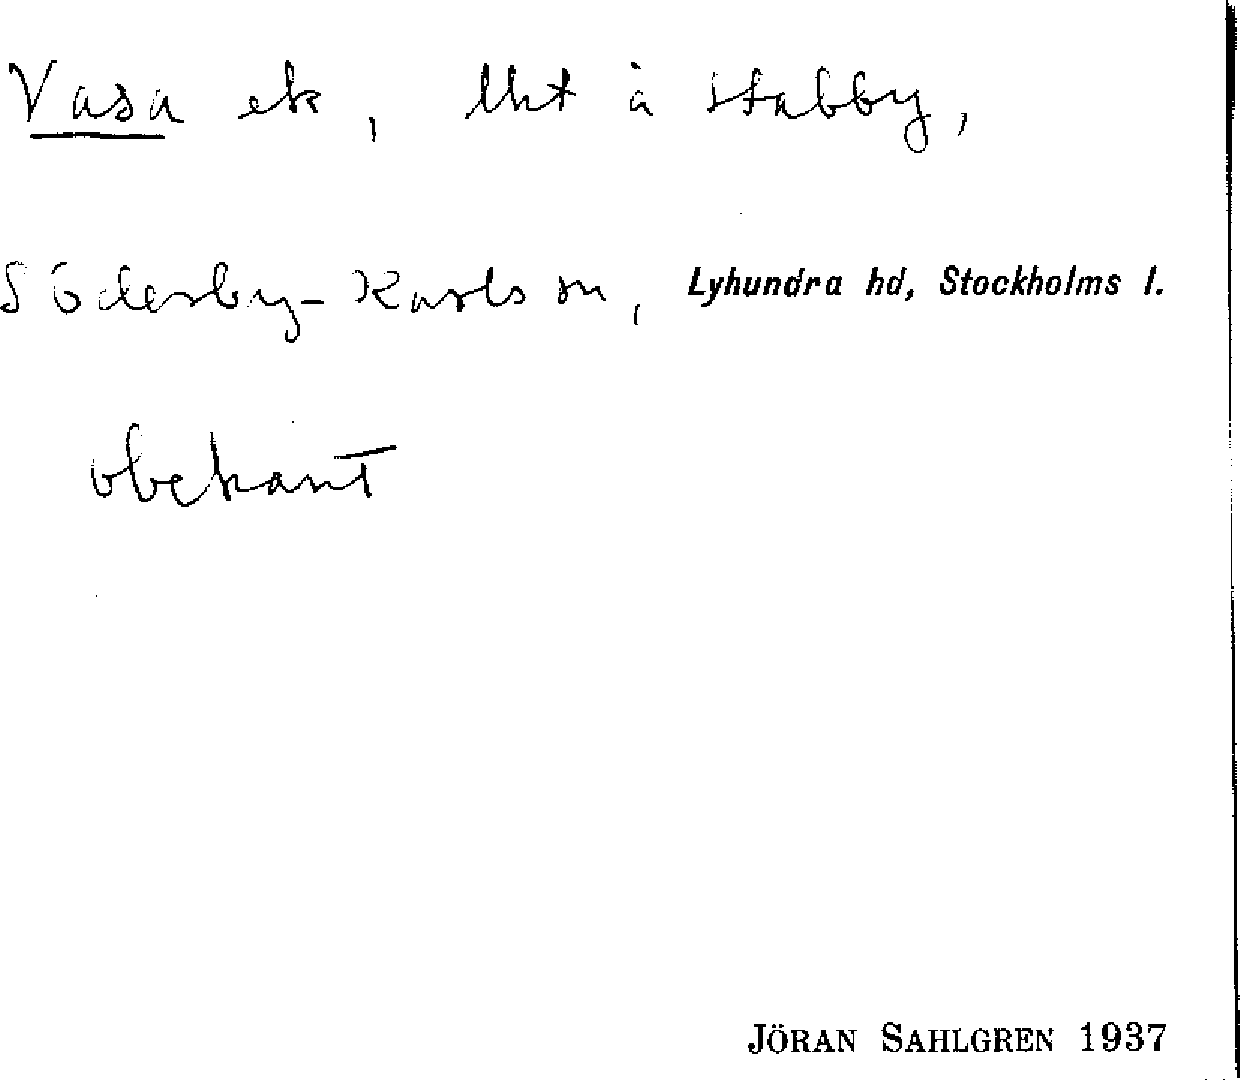 Vasa ek, lht å Stabby,
Söderby-Karls sn, Lyhundra hd, Stockholms l.
obekant
JÖRAN SAHLGREN 1937